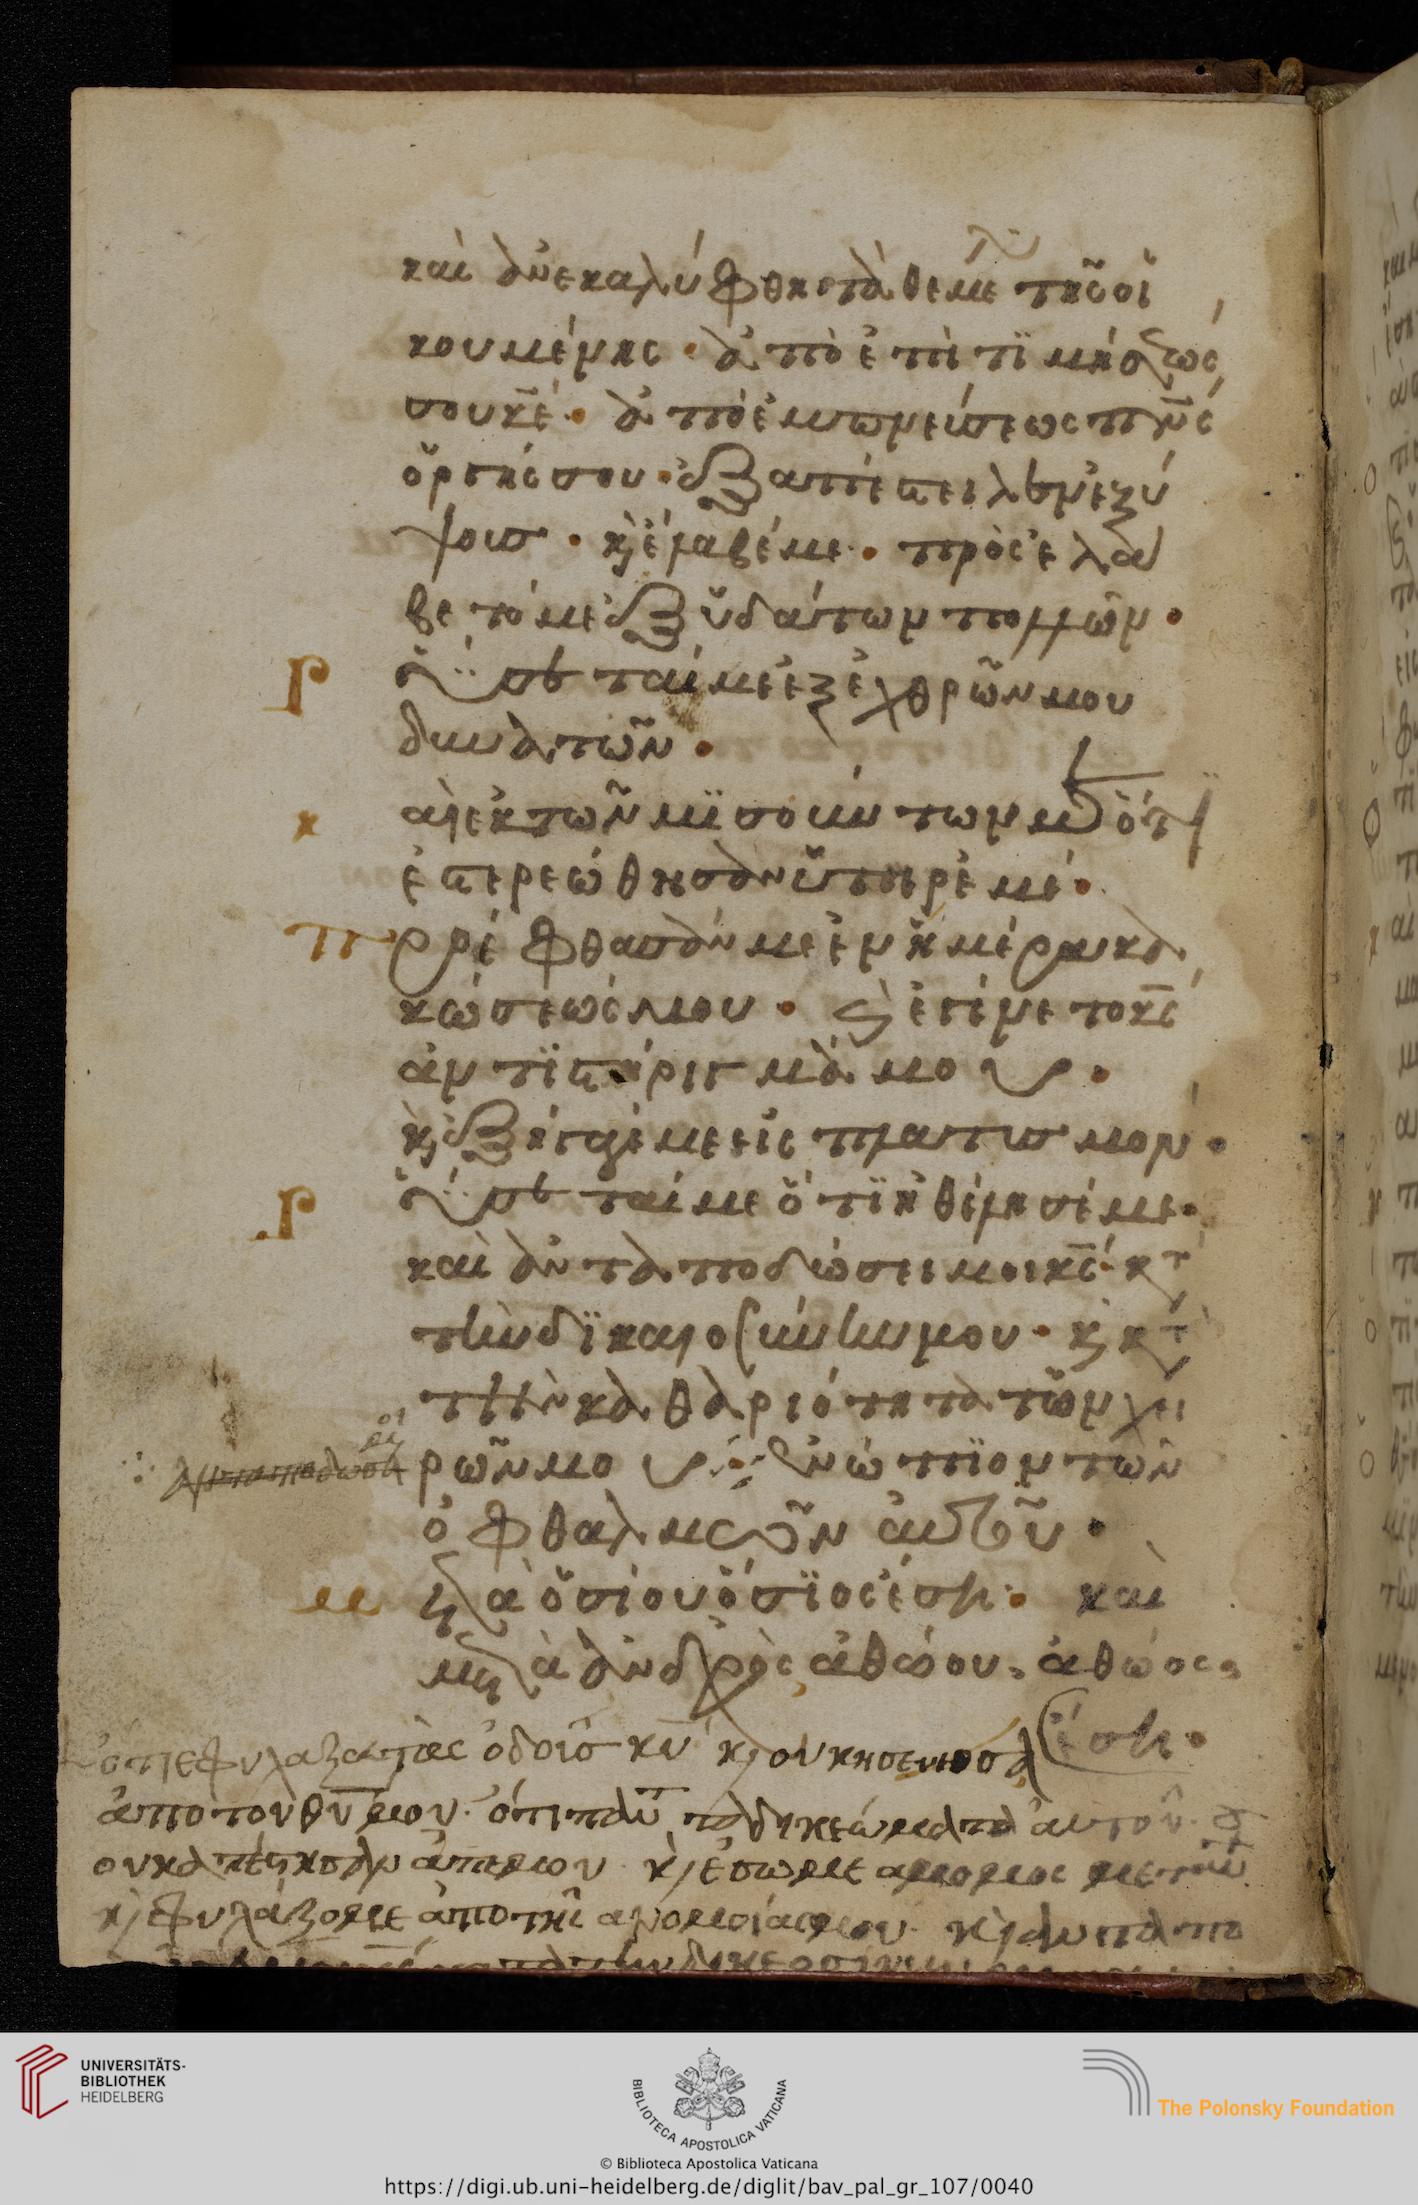 καὶ ἀνεκαλύφθη τὰ θεμε τῆς οἰ
κουμένης · ἀπὸ ἐπιτιμήσεώς
σου κ̅ε̅ · ἀπὸ ἐμπνεύσεως πν̅ς
ὀργῆς σου · ἐξαπέστειλεν ἐξ ύ
ψους · κ(αὶ) ἔλαβέ με · προσελά
βετό με ἐξ ὑδάτων πολλῶν ·
ῥύσεταί με ἐξ ἐχθρῶν μου
δυνατῶν ·
κ αὶ ἐκ τῶν μισούντων με ὅτι
ἐστερεώθησαν ὑπὲρ ἐμέ ·
π ροέφθασάν με ἐν ἡμέρα κα
κώσεώς μου · κ(αὶ) ἐγένετο κ̅ς̅
ἀντιστήριγμά μου ·
κ(αὶ) ἐξήγαγέ με εἰς πλατυσμόν ·
ῥύσεταί με ὅτι ἠθέλησέ με ·
καὶ ἀνταποδώσει μοι κ̅ς̅ · κτ
τὴν δικαιοσύνην μου · κ(αὶ) κτ
τὴν καθαριότητα τῶν χει
ρῶν μου ἐνώπιον τῶν
ὀφθαλμῶν αὐτοῦ ·
μετὰ ὁσίου ὅσιος ἔση · καὶ
μετὰ ἀνδρὸς ἀθώου, ἀθῶος
ἔση ·
ὅτι εφυλαξα τὰς ὁδοὺς κυ̅ κ(αὶ) ουκ ησενησα
ἀπο του θυ̅ μου · ότι παν τὰ δικεώματα ἀυτοῦ
ουκ ἀπέστησαν ἀπεμου · κ(αὶ) ἔσωμε αμομος μετ αυ
κ(αὶ) εφυλάξομε ἀπο τῆς ανομοίας μου · κ(αὶ) ανταπο
UNIVERSITÄTS-
BIBLIOTHEK
HEIDELBERG
BIBLIOTECA APOSTOLICA VATICANA
The Polonsky Foundation
© Biblioteca Apostolica Vaticana
https://digi.ub.uni-heidelberg.de/diglit/bav_pal_gr_107/0040